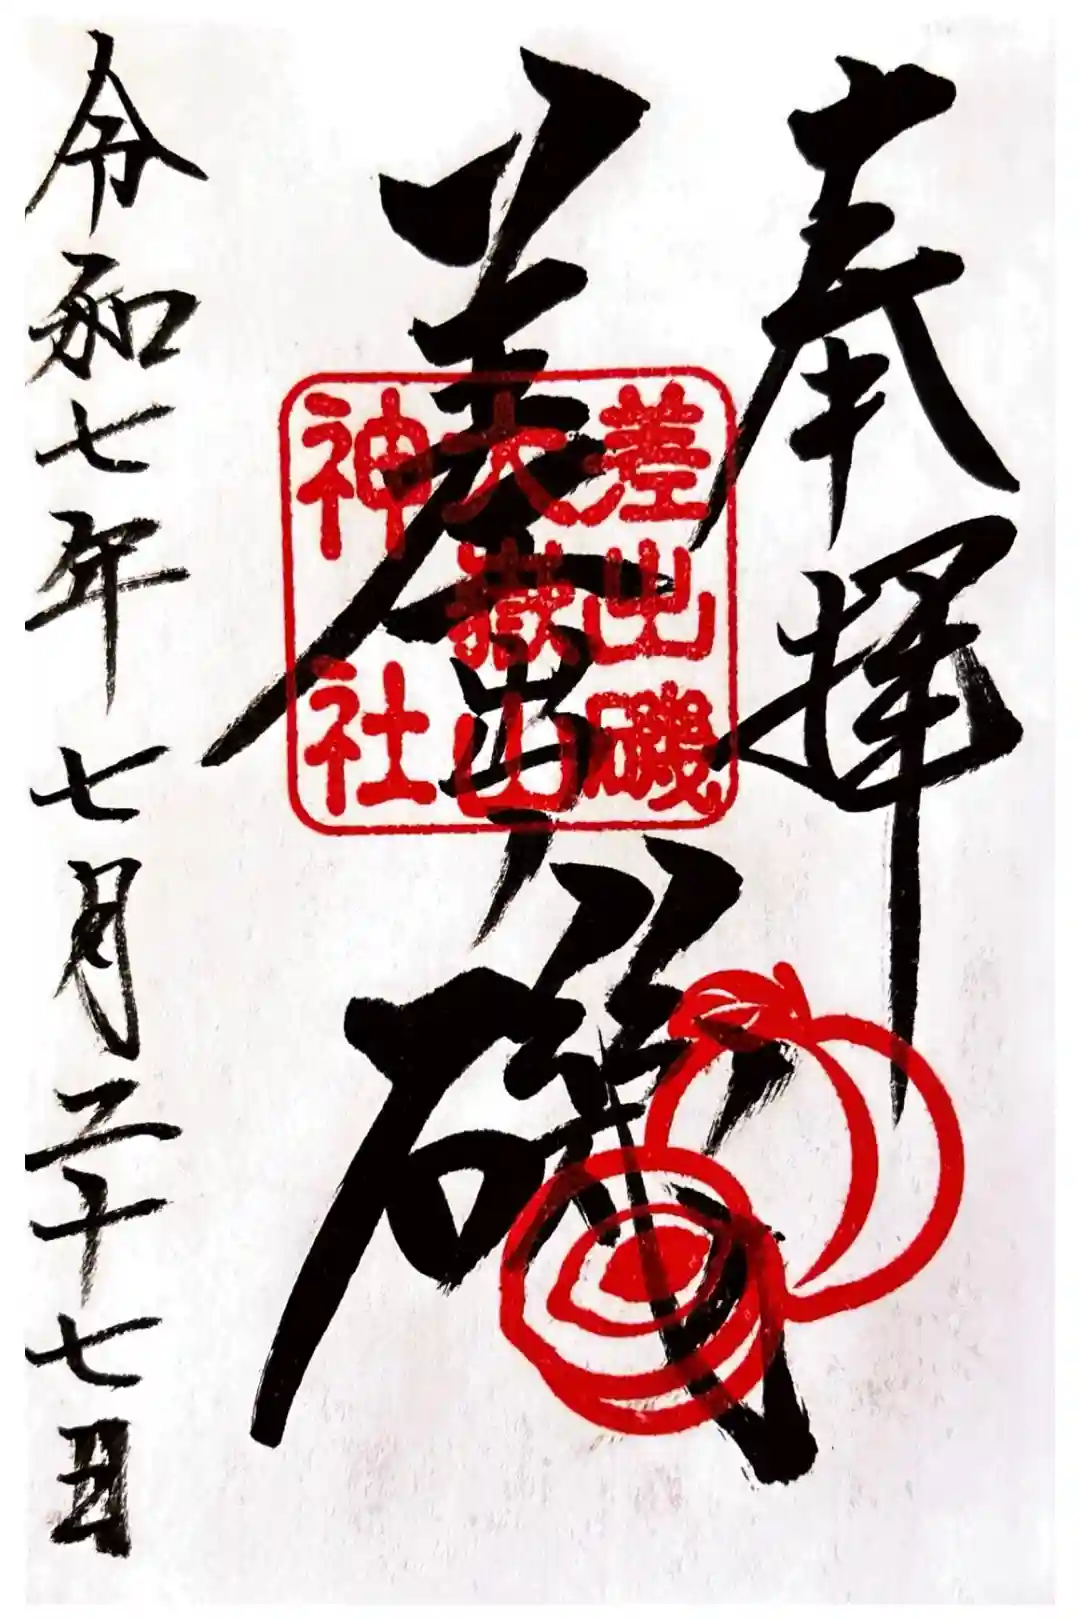 奉拝
差出磯
差出磯
大嶽山
神社
令和七年 七月二十七日